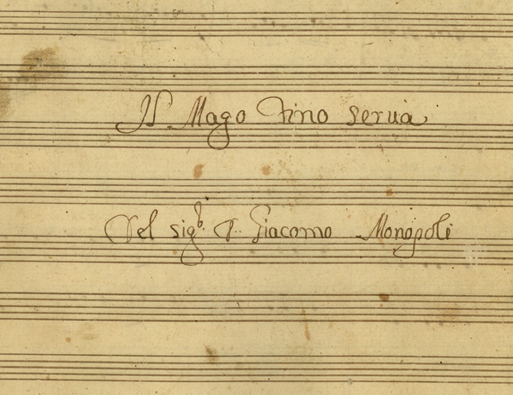 Il Mago Fino serva
Del sig.r D. Giacomo Monopoli